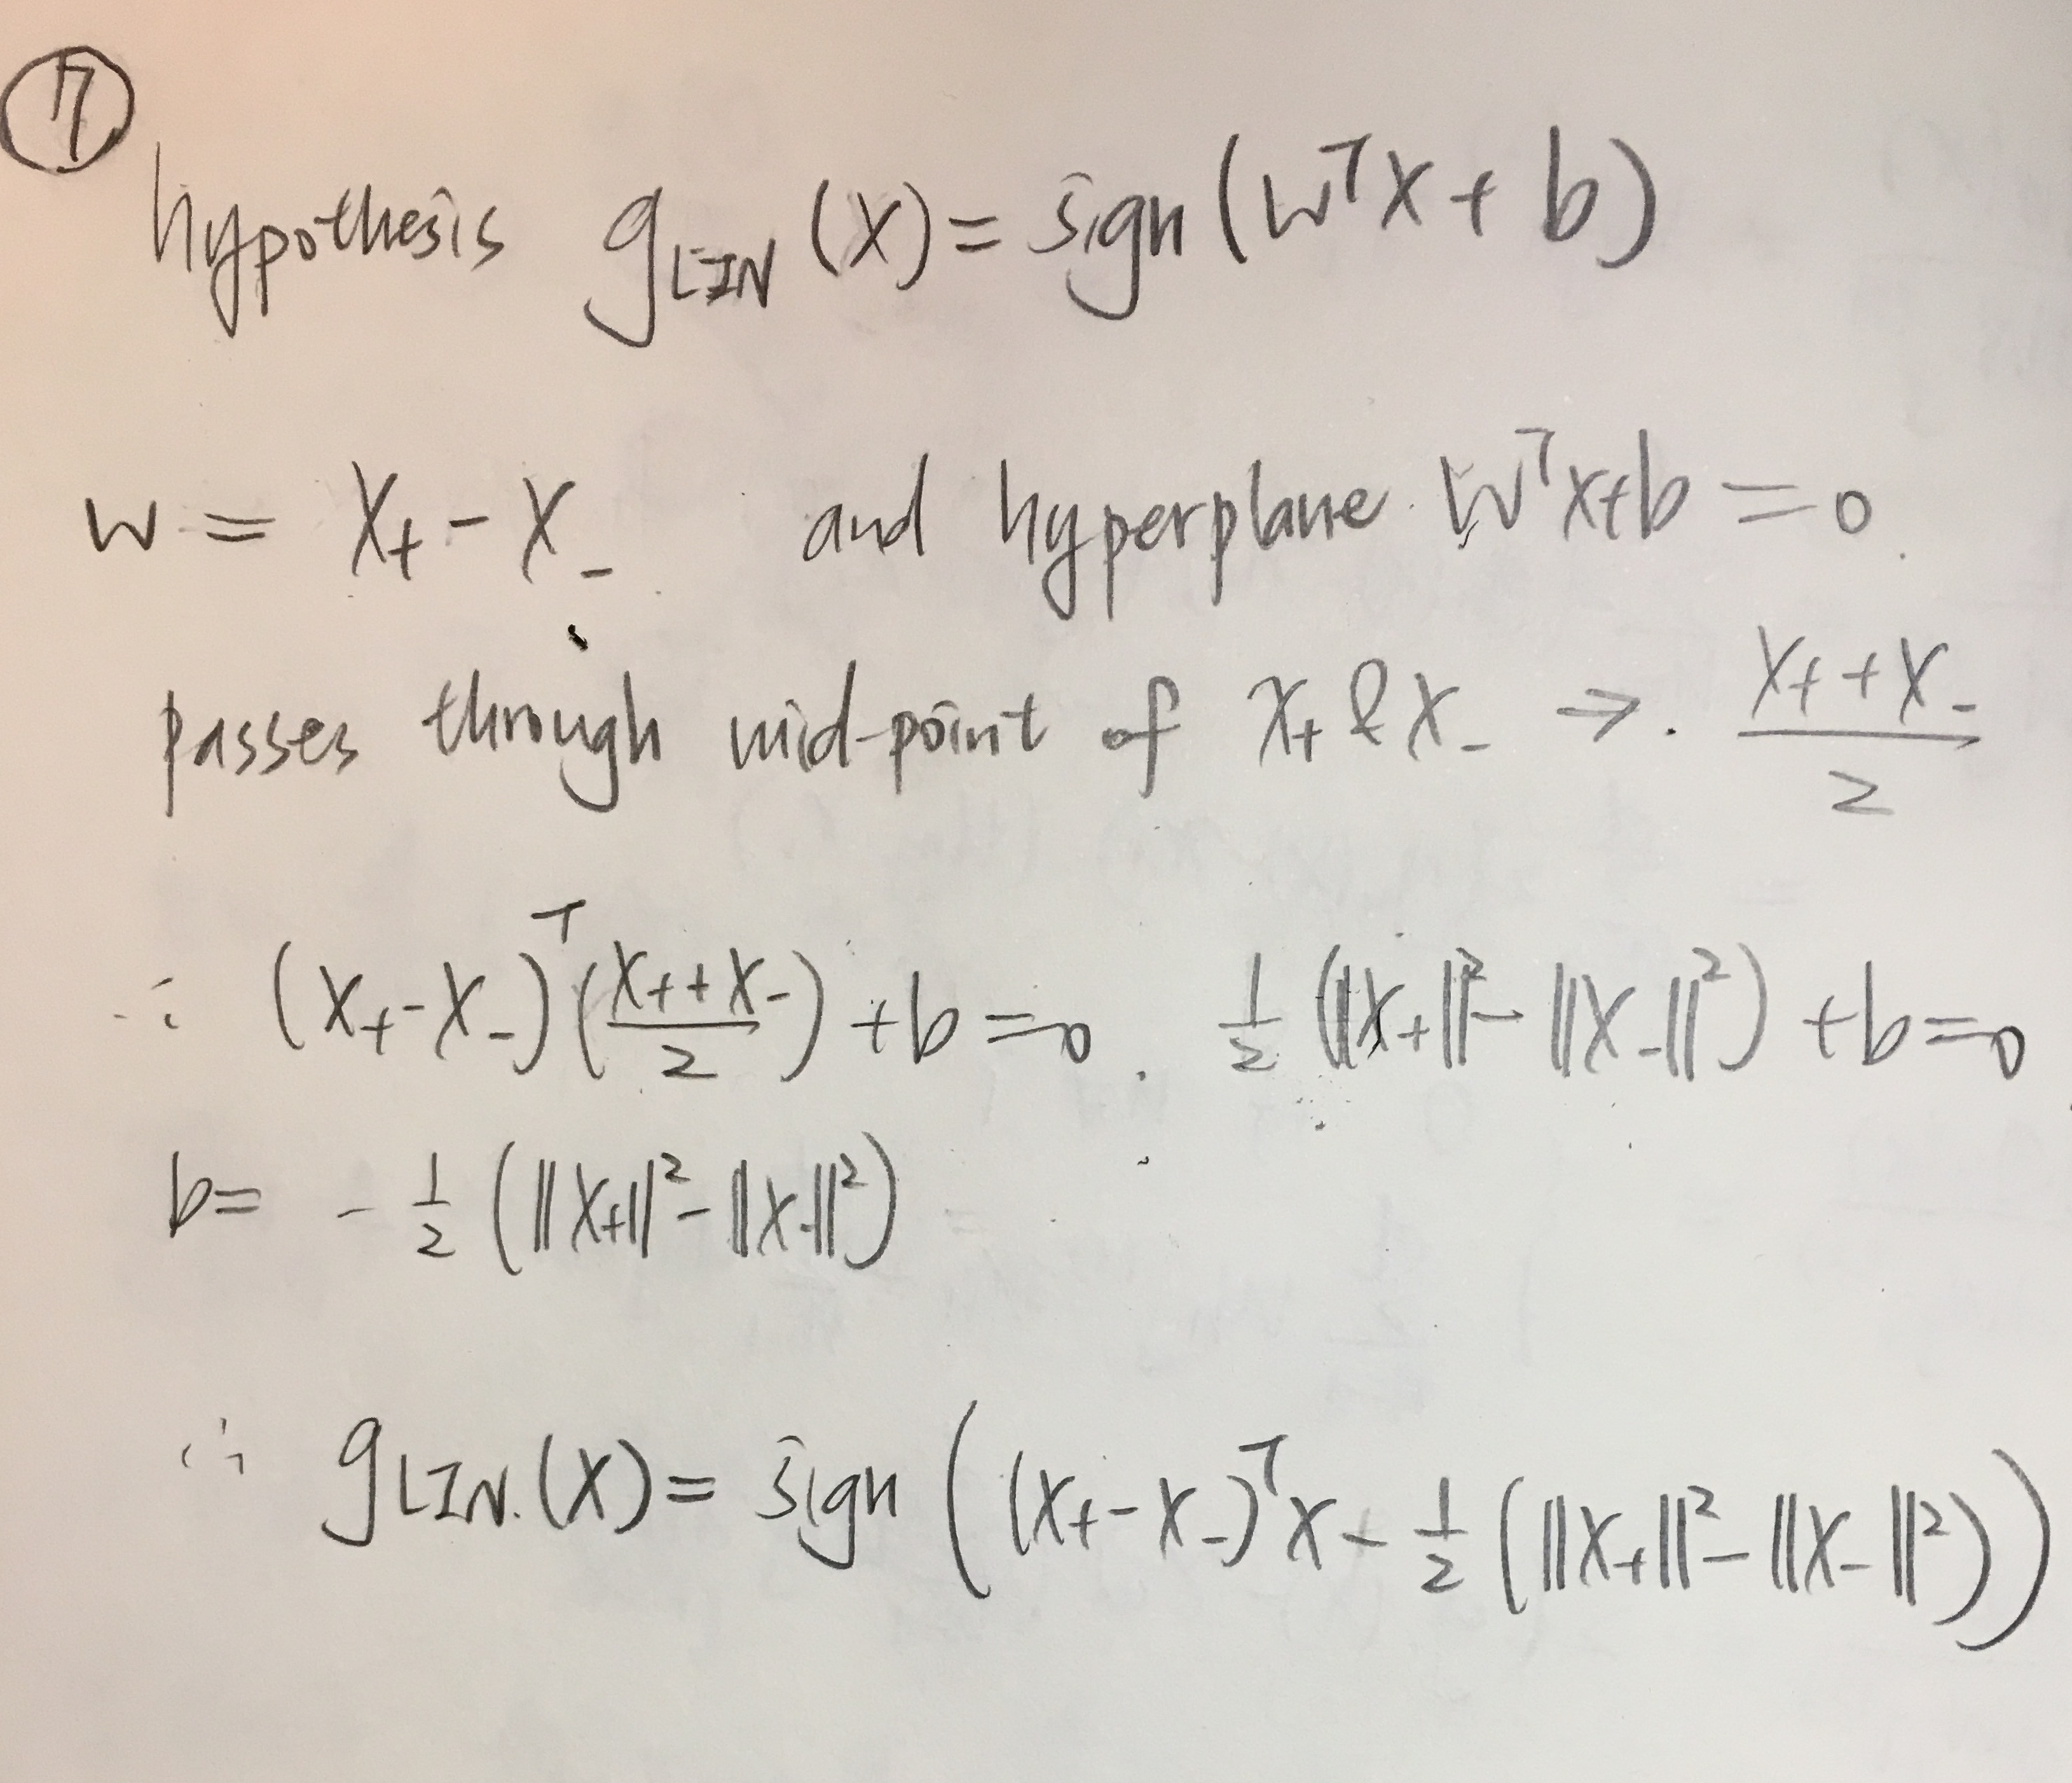 ⑦
hypothesis g_LIN (x) = sign (w^T x + b)
w = x_+ - x_- and hyperplane w^T x + b = 0.
passes through mid-point of x_+ & x_- → . \frac{x_+ + x_-}{2}
∴ (x_+ - x_-)^T (\frac{x_+ + x_-}{2}) + b = 0 . \frac{1}{2} (||x_+||^2 - ||x_-||^2) + b = 0
b = - \frac{1}{2} (||x_+||^2 - ||x_-||^2)
∴ g_LIN. (x) = sign ((x_+ - x_-)^T x - \frac{1}{2} (||x_+||^2 - ||x_-||^2))